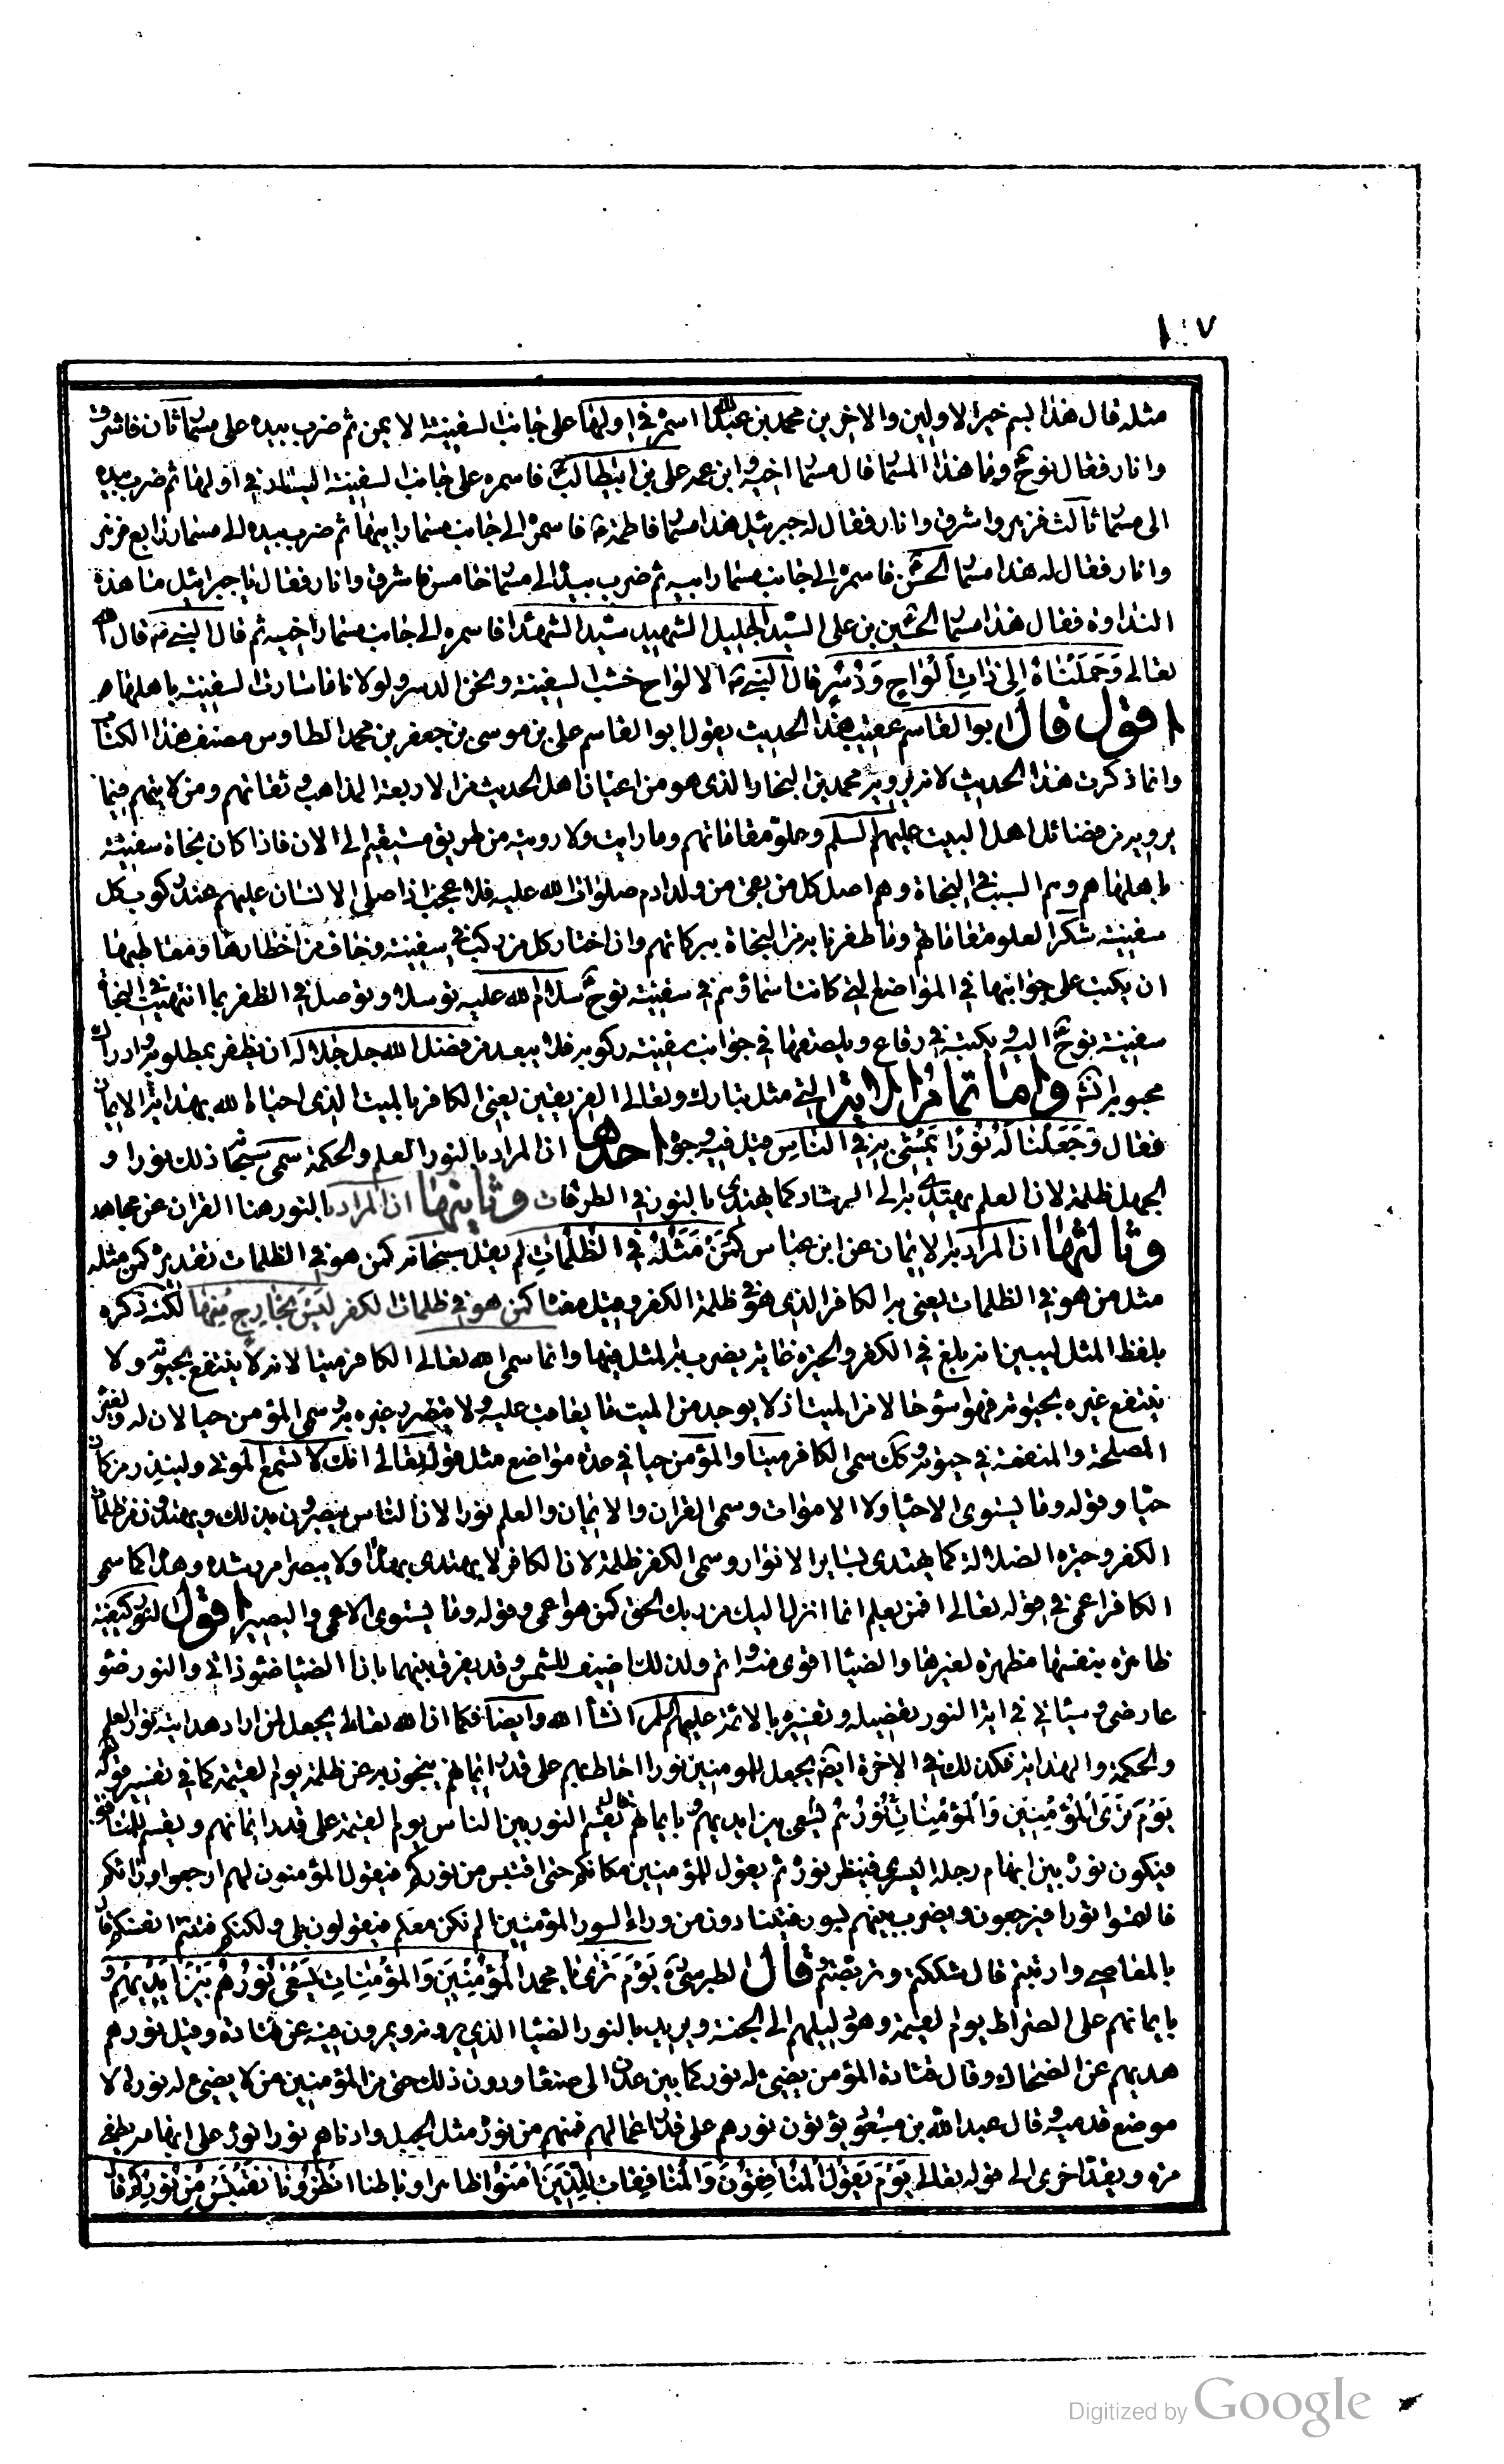 ١٠٧
مثله قال هذا بسم خير الاولين والاخرين محمد بن عبد الله اسمره في اولها على جانب السفينة الايمن ثم ضرب بيده على مسمار ثان فاشرق
وانار فقال نوح وما هذا المسمار قال مسمار اخيه وابن عمه علي بن ابيطالب فاسمره على جانب السفينة اليسار في اولها ثم ضرب بيده
الى مسمار ثالث فزهر واشرق وانار فقال له جبرئيل هذا مسمار فاطمة فاسمره الى جانب مسمار ابيها ثم ضرب بيده الى مسمار رابع فزهر
وانار فقال له هذا مسمار الحسن فاسمره الى جانب مسمار ابيه ثم ضرب بيده الى مسمار خامس فاشرق وانار فقال يا جبرائيل ما هذه
النداوة فقال هذا مسمار الحسين بن علي السيد الجليل الشهيد سيد الشهداء فاسمره الى جانب مسمار اخيه ثم قال النبي ص قال الله
تعالى وَحَمَلْنَاهُ إِلى ذاتِ أَلْواحٍ وَدُسُرٍ قال النبي ص الالواح خشب السفينة ونحن الدسر ولولانا ما سارت السفينة باهلها
اقول قال ابو القاسم عقيب هذا الحديث يقول ابو القاسم علي بن موسى بن جعفر بن محمد الطاوس مصنف هذا الكتاب
وانما ذكرت هذا الحديث لانه برواية محمد بن النجار الذى هو من اعيان اهل الحديث من الاربعة المذاهب وثقاتهم ومن لا يتهم فيما
يرويه من فضائل اهل البيت عليهم السلم وعلو مقاماتهم وما رايت ولا رويته من طريق مستقيم الى الان فاذا كان نجاة سفينة
باهلها هم وهم السبب في النجاة وهم اصل كل من بقى من ولد ادم صلوات الله عليه فلا عجب اذا صلى الانسان عليهم عند ركوب كل
سفينة شكرا لعلو مقاماتهم وما ظفرنا به من النجاة ببركاتهم وان اختار كل من ركب سفينة وخاف من اخطارها ومعاطبها
ان يكتب على جوانبها في المواضع التى كانت اسماؤهم في سفينة نوح سلام الله عليه توسلا وتوصلا في الظفر بما انتهيت في النجاة
سفينة نوح اليه ويكتبه في رقاع ويلصقها في جوانب سفينة ركوبه فلا يبعد من فضل الله جل جلاله ان يظفر بمطلوبه وادراك
محبوبه انشـ واما تمام الاية التي مثل تبارك وتعالى الفريقين يعنى الكافر بالميت الذى احياه الله بهذاية الايمان
فقال وَجَعَلْنا لَهُ نُورًا يَمْشِي بِهِ فِي النَّاسِ قيل فيه وجوه احدها ان المراد بالنور العلم والحكمة سمى سبحانه ذلك نورا و
الجهل ظلمة لان العلم يهتدى به الى الرشاد كما يهتدى بالنور في الطرقات وثانيها ان المراد بالنور هنا القران عن مجاهد
وثالثها ان المراد به الايمان عن ابن عباس كَمَنْ مَثَلُهُ فِي الظُّلُماتِ لم يقل سبحانه كمن هو في الظلمات تقديره كمن مثله
مثل من هو في الظلمات يعنى به الكافر الذى هو في ظلمة الكفر وقيل معناه كمن هو في ظلمات الكفر لَيْسَ بِخارِجٍ مِنْها لكنه ذكره
بلفظ المثل ليبين انه بلغ في الكفر والحيرة غاية يضرب به المثل فيها وانما سمى الله تعالى الكافر ميتا لانه لا ينتفع بحيوته ولا
ينتفع غيره بحيوته فهو اسوء حالا من الميت اذ لا يوجد من الميت ما يعاقب عليه ولا يتضرر غيره به وسمى المؤمن حيا لان له ولغيره
المصلحة والمنفعة في حيوته وكك سمى الكافر ميتا والمؤمن حيا في عدة مواضع مثل قوله تعالى انك لا تسمع الموتى ولينذر من كان
حيا وقوله وما يستوى الاحياء ولا الاموات وسمى القران والايمان والعلم نورا لان الناس يبصرون بذلك ويهتدون من ظلمات
الكفر وحيرة الضلالة كما يهتدى بساير الانوار وسمى الكفر ظلمة لان الكافر لا يهتدى بهداه ولا يبصر امر رشده وهذا كما سمى
الكافر اعمى في قوله تعالى افمن يعلم انما انزل اليك من ربك الحق كمن هو اعمى وقوله وما يستوى الاعمى والبصير اقول النور كيفية
ظاهرة بنفسها مظهرة لغيرها والضياء اقوى منه واتم ولذلك اضيف للشمس وقد يفرق بينهما بان الضياء ضوء ذاتي والنور ضوء
عارضى وسياتي في اية النور تفصيله وتفسيره بالائمة عليهم السلم انشاء الله وايضا فكما ان الله تعالى يجعل لمن اراد هدايته نور العلم
والحكمة والهداية فكذلك في الاخرة ايضا يجعل للمومنين نورا احاط بهم على قدر ايمانهم ينجون به عن ظلمة يوم القيمة كما في تفسير قوله
يَوْمَ تَرَى الْمُؤْمِنِينَ وَالْمُؤْمِناتِ نُورُهُمْ يَسْعى بين ايديهم وبايمانهم قال يقسم النور بين الناس يوم القيمة على قدر ايمانهم ويقسم للمنافق
فيكون نوره بين ابهام رجله اليسرى فينظر نوره ثم يقول للمؤمنين مكانكم حتى اقتبس من نوركم فيقول المؤمنون لهم ارجعوا ورائكم
فالتمسوا نورا فيرجعون ويضرب بينهم بسور فينادون من وراء السور المؤمنين الم نكن معكم فيقولون بلى ولكنكم فتنتم انفسكم قال
بالمعاصى وارتبتم قال شككتم وتربصتم قال الطبرسي يَوْمَ تَرَى يا محمد الْمُؤْمِنِينَ وَالْمُؤْمِناتِ يَسْعى نُورُهُمْ بَيْنَ أَيْدِيهِمْ و
بايمانهم على الصراط يوم القيمة وهو دليلهم الى الجنة ويريد بالنور الضياء الذى يرونه ويمرون فيه عن قتادة وقيل نورهم
هديهم عن الضحاك وقال قتادة المؤمن يضيئ له نور كما بين عدن الى صنعا ودون ذلك حتى من المؤمنين من لا يضيئ له نوره الا
موضع قدميه وقال عبد الله بن مسعود يؤتون نورهم على قدر اعمالهم فمنهم من نوره مثل الجبل وادناهم نورا نوره على ابهامه يطفئ
مرة ويقد اخرى الى قوله تعالى يَوْمَ يَقُولُ الْمُنافِقُونَ وَالْمُنافِقاتُ لِلَّذِينَ امَنُوا ظاهرا وباطنا انْظُرُونا نَقْتَبِسْ مِنْ نُورِكُمْ قال
Digitized by Google